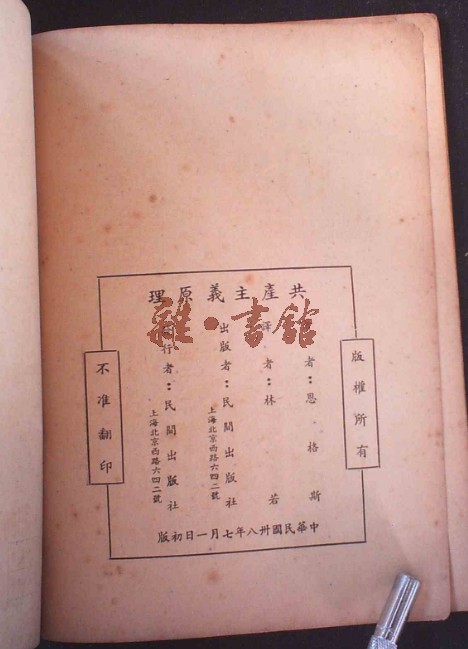 共產主義原理
雜·書館
版權所有
者：恩格斯
譯者：林若
出版者：民間出版社
上海北京西路六四二號
行者：民間出版社
上海北京西路六四二號
不准翻印
中華民國卅八年七月一日初版